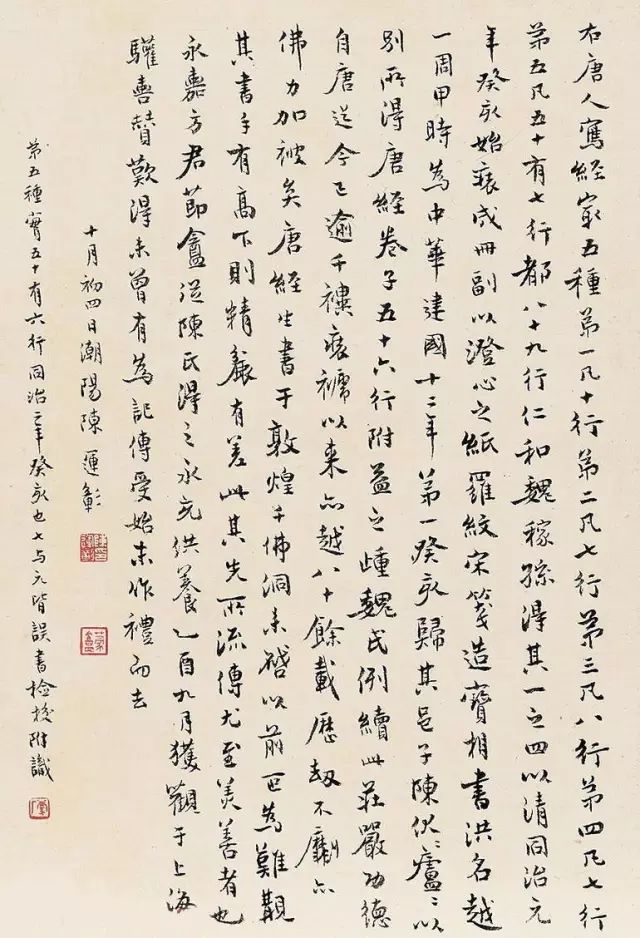 右唐人寫經家五種第一凡十行第二凡七行第三凡八行第四凡七行
第五凡五十有七行都八十九行仁和魏稼孫得其一之四以清同治元
年癸亥始裝成冊副以澄心之紙羅紋宋箋造寶相書洪名越
一周甲時為中華建國十二年第一癸亥歸其邑子陳伏廬〻以
別所得唐經卷子五十六行附益之踵魏氏例續此莊嚴功德
自唐迄今已逾千禩裝褫以來亦越八十餘載歷劫不劘亦
佛力加被矣唐經生書于敦煌千佛洞未啓以前叵為難覯
其書手有高下則精麤有差此其先所流傳尤至美善者也
永嘉方君節盦從陳氏得之永充供養乙酉九月獲觀于上海
驩喜贊歎得未曾有為記傳受始末作禮而去
十月初四日潮陽陳運彰
第五種實五十有六行同治二年癸亥也七与元皆誤書檢校附識